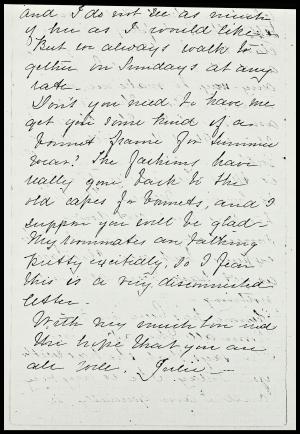 and I do not see as much
of her as I would like.
But we always walk to-
gether on Sundays at any
rate.
Don't you need to have me
get you some kind of a
bonnet frame for summer
wear? The fashions have
really gone back to the
old capes for bonnets, and I
suppose you will be glad-
My roommates are talking
pretty excitedly, so I fear
this is a very disconnected
letter.
With very much love and
the hope that you are
all well. Julie-